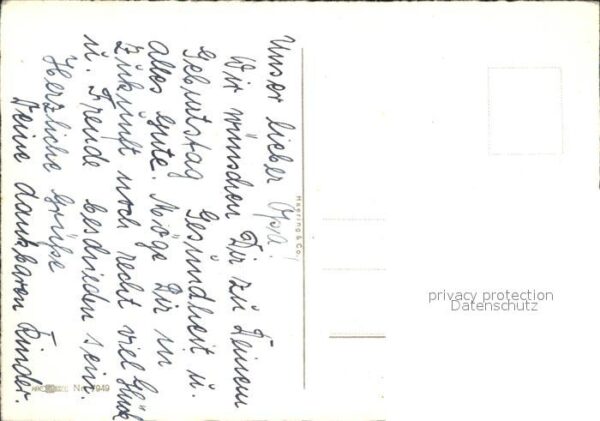 Unser lieber Opa!
Wir wünschen Dir zu Deinem
Geburtstag Gesundheit u.
alles Gute. Möge Dir in
Zukunft noch recht viel Glück
u. Freude beschieden sein.
Herzliche Grüße
Deine dankbaren Kinder.
Haering & Co.
Nr. 7949
privacy protection
Datenschutz